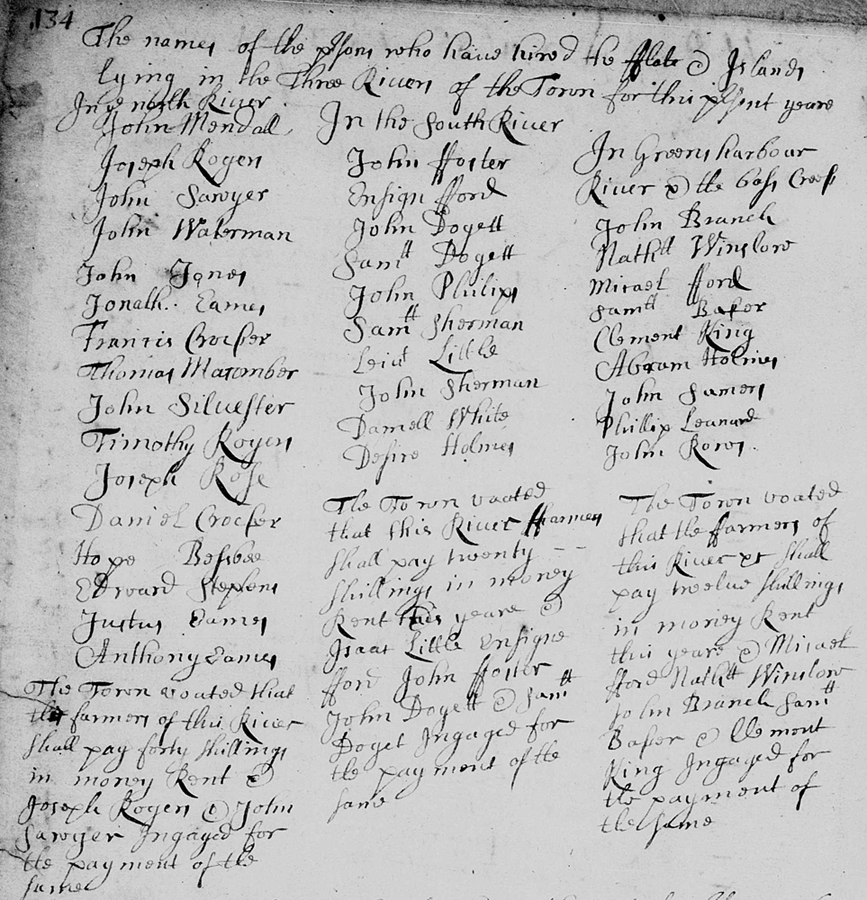 134
The names of the psons who have hired the fflats & Islands
lying in the Three Rivers of the Town for this psent yeare
In ye north River
John Mendall
Joseph Rogers
John Sawyer
John Waterman
John Jones
Jonath: Eames
Francis Crocker
Thomas Macomber
John Silvester
Timothy Rogers
Joseph Rose
Daniel Crocker
Hope Besbee
Edward Stephens
Justus Eames
Anthony Eames
The Town voated that
the farmers of this River
shall pay forty shillings
in money Rent &
Joseph Rogers & John
Sawyer Ingaged for
the payment of the
same
In the South River
John ffoster
Ensign fford
John Dogett
Samll Dogett
John Philips
Samll Sherman
Leiut Little
John Sherman
Daniell White
Desire Holmes
The Town voated
that this River ffarmers
shall pay twenty --
shillings in money
Rent this yeare &
Isaac Little Ensigne
fford John ffoster
John Dogett & Samll
Doget Ingaged for
the payment of the
same
In Greens harbour
River & the bass Creek
John Branch
Nathll Winslow
Micael fford
Samll Baker
Clement King
Abram Holmes
John Sames
Phillip Leanard
John Rows
The Town voated
that the ffarmers of
this River shall
pay twelve shillings
in money Rent
this yeare & Micael
fford Nathll Winslow
John Branch Samll
Baker & Clement
King Ingaged for
the payment of
the same